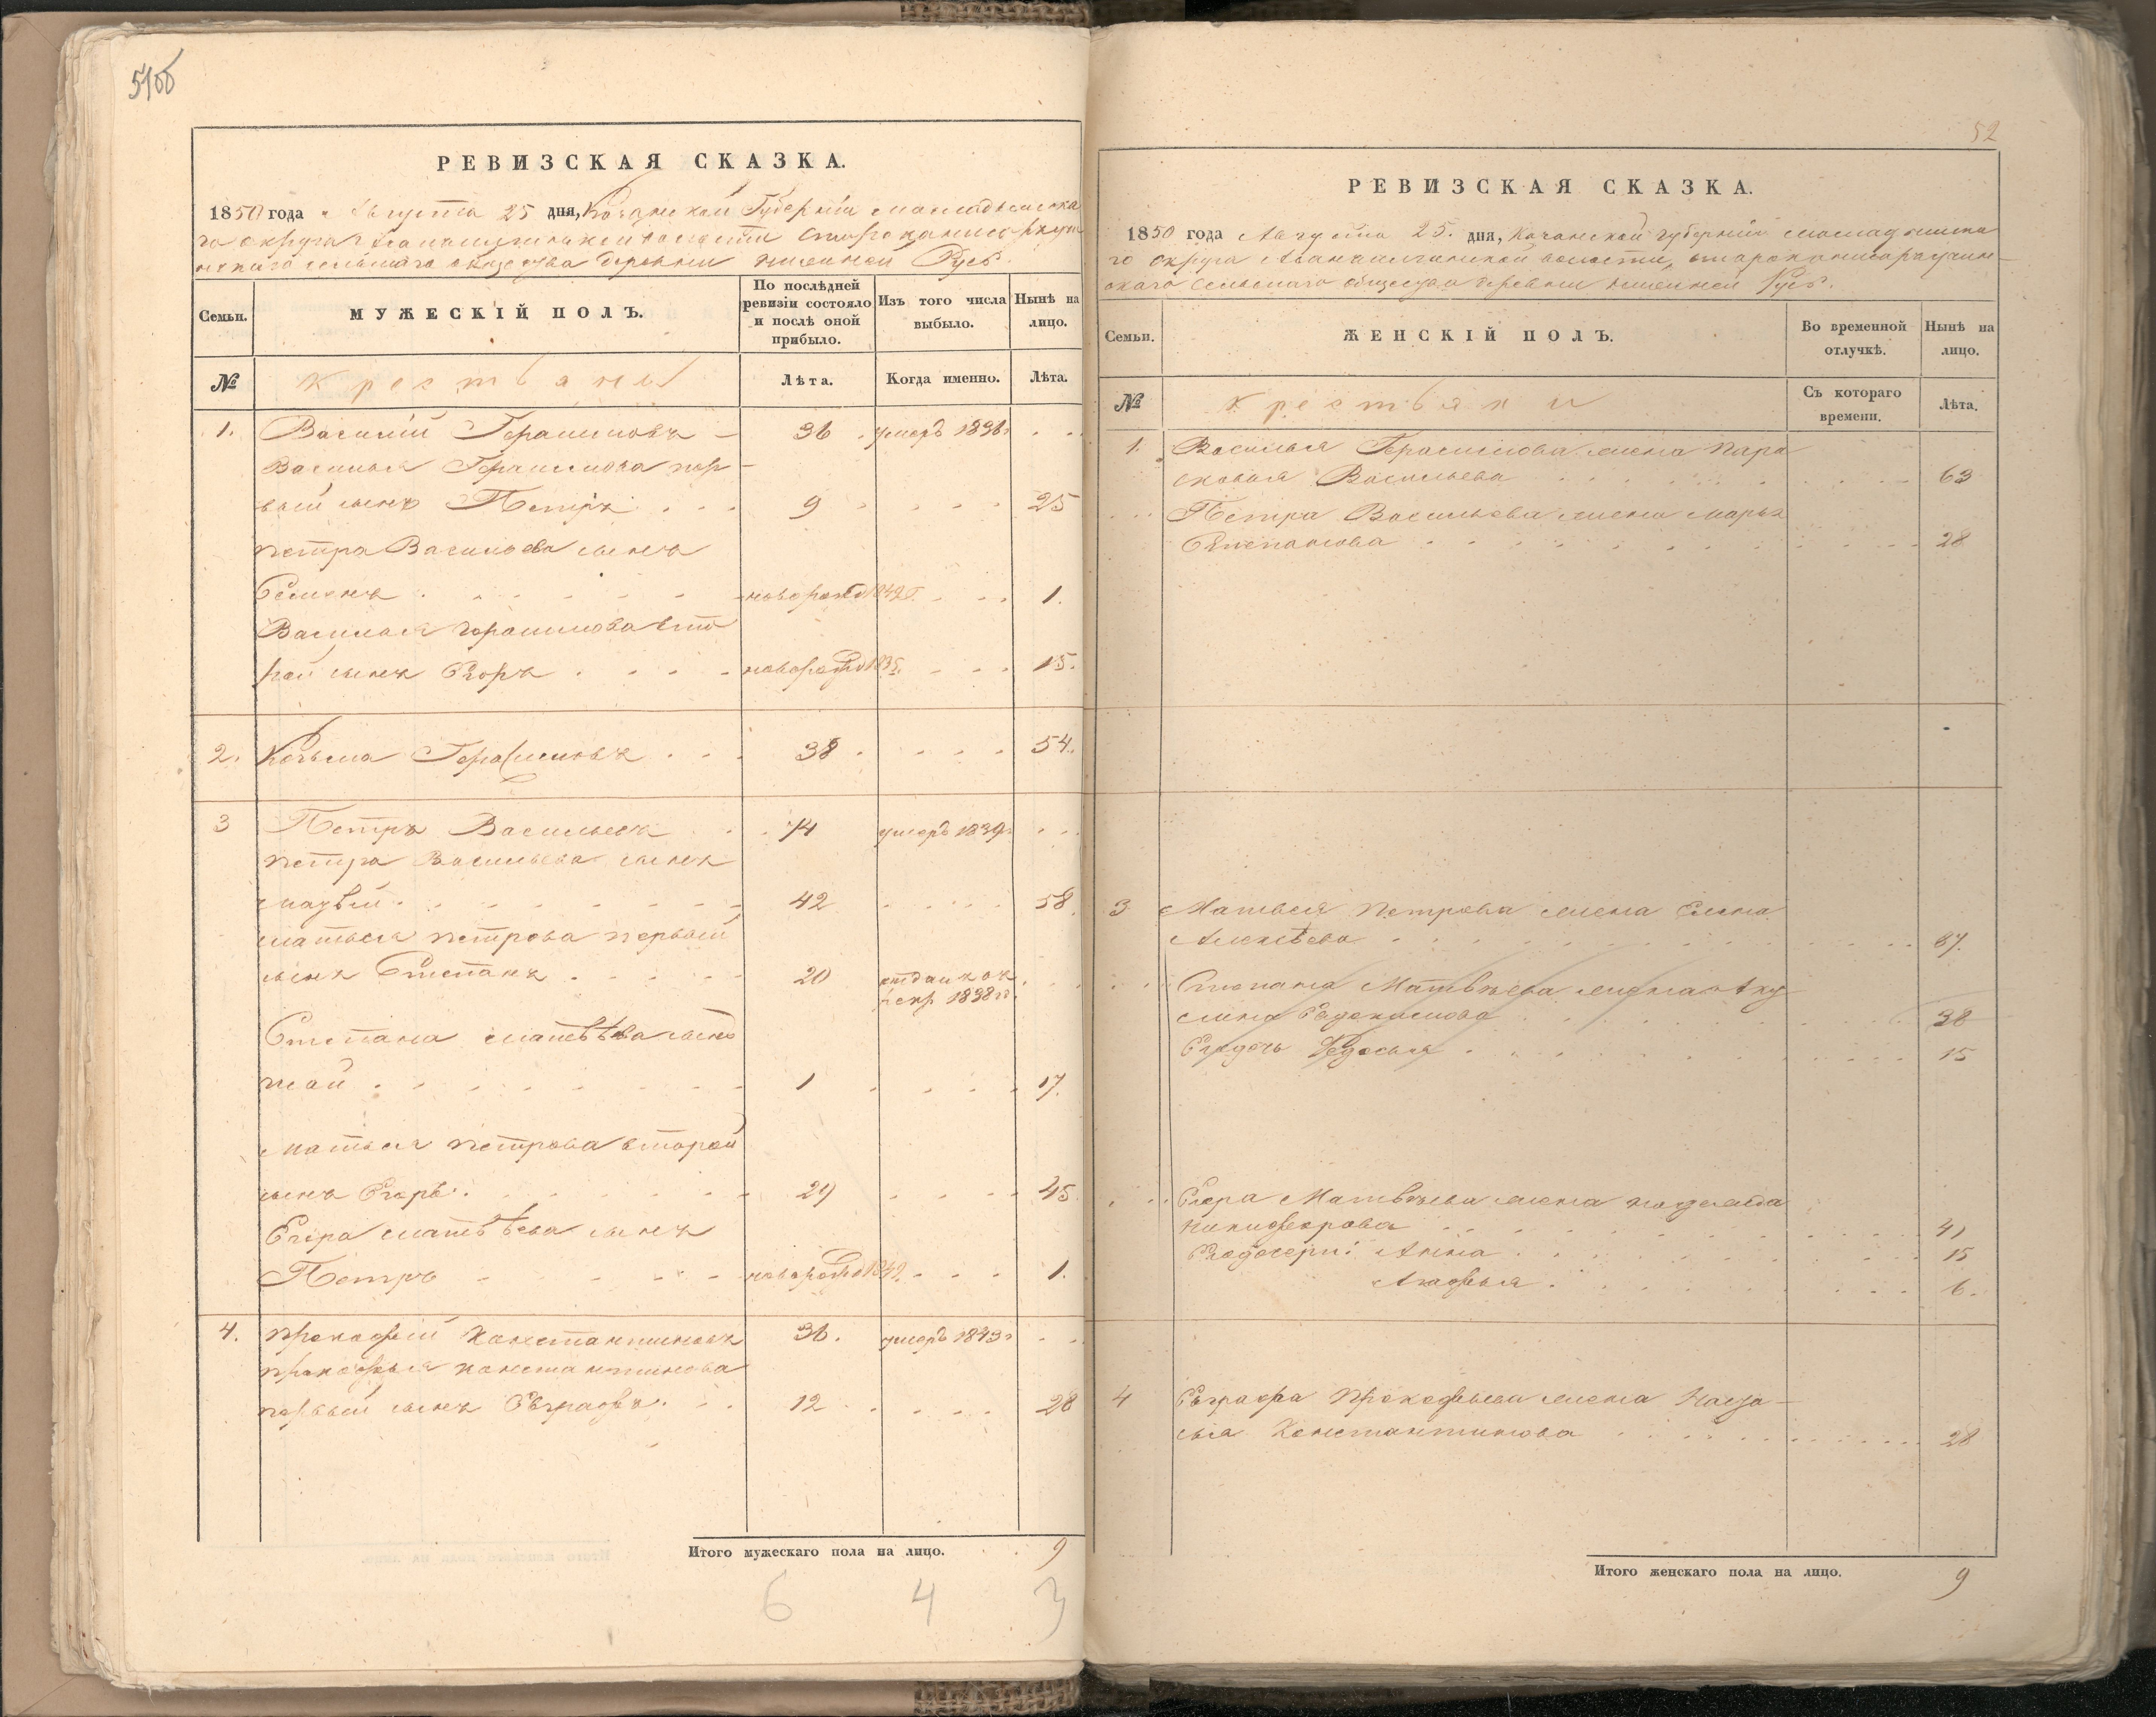 51об
РЕВИЗСКАЯ СКАЗКА.
1850 года Августа 25 дня, Казанской Губерніи Мамадышска
го округа волости
сельскаго общества деревни Русь.
Семьи.
МУЖЕСКІЙ ПОЛЪ.
По послѣдней ревизіи состояло и послѣ оной прибыло.
Изъ того числа выбыло.
Нынѣ на лицо.
№
Крестьяны
Лѣта.
Когда именно.
Лѣта.
1. Василій Герасимовъ 36 умеръ 1836
Василья Герасимова пер-
вый сынъ Петръ 9 25
Петра Васильева сынъ
Семенъ новорожд 1849 1.
Василья Герасимова вто
рой сынъ Егоръ новорожд 1835 15.
2. Козьма Герасимовъ 38 54.
3 Петръ Васильевъ 74 умеръ 1839
Петра Васильева сынъ
Матвѣй 42 58
Матвея Петрова первый
сынъ Степанъ 20 отданъ въ
рекр 1838
Степана Матвѣева сынъ
1 17.
Матвея Петрова второй
сынъ Егоръ 29 45
Егора Матвѣева сынъ
Петръ новорожд 1849 1.
4. Прокофей Константиновъ 36. умеръ 1843
Прокофья Константинова
первый сынъ Евграфъ 12 28
Итого мужескаго пола на лицо. 9
6 4 3
52
РЕВИЗСКАЯ СКАЗКА.
1850 года Августа 25. дня, Казанской губерніи Мамадышска
го округа волости,
скаго сельскаго общества деревни Русь.
Семьи.
ЖЕНСКІЙ ПОЛЪ.
Во временной отлучкѣ.
Нынѣ на лицо.
№
Крестьяны
Съ котораго времени.
Лѣта.
1. Василья Герасимова жена Пара
сковья Васильева 63
Петра Васильева жена Марья
Степанова 28
3 Матвея Петрова жена Елена
Алексѣева
Степана Матвѣева жена Аку
лина Евдокимова 38
Его дочь Федосья 15
Егора Матвѣева жена
Никифорова 41
Его дочери: Анна 15
Агафья 6.
4 Евграфа Прокофьева жена Ната-
лья Константинова 28
Итого женскаго пола на лицо. 9